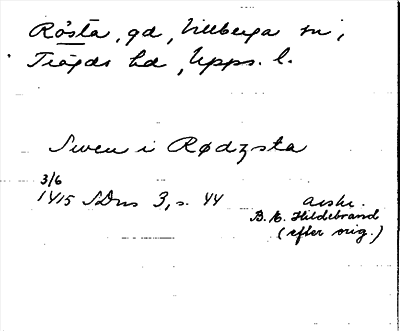 Rösta, gd, Villberga sn,
Trögds hd, Upps. l.
Swen i Rødzsta
3/6
1415 SDns 3, s. 44
avskr.
B. E. Hildebrand
(efter orig.)